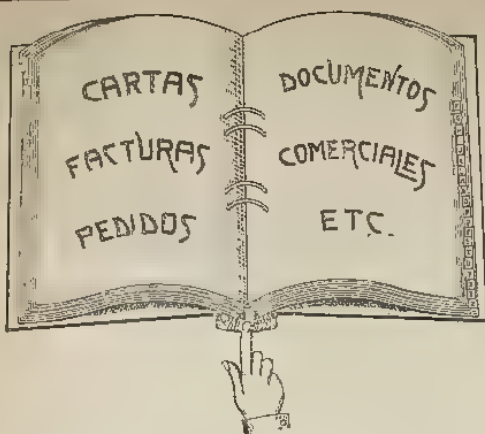 CARTAS
FACTURAS
PEDIDOS
DOCUMENTOS
COMERCIALES
ETC.